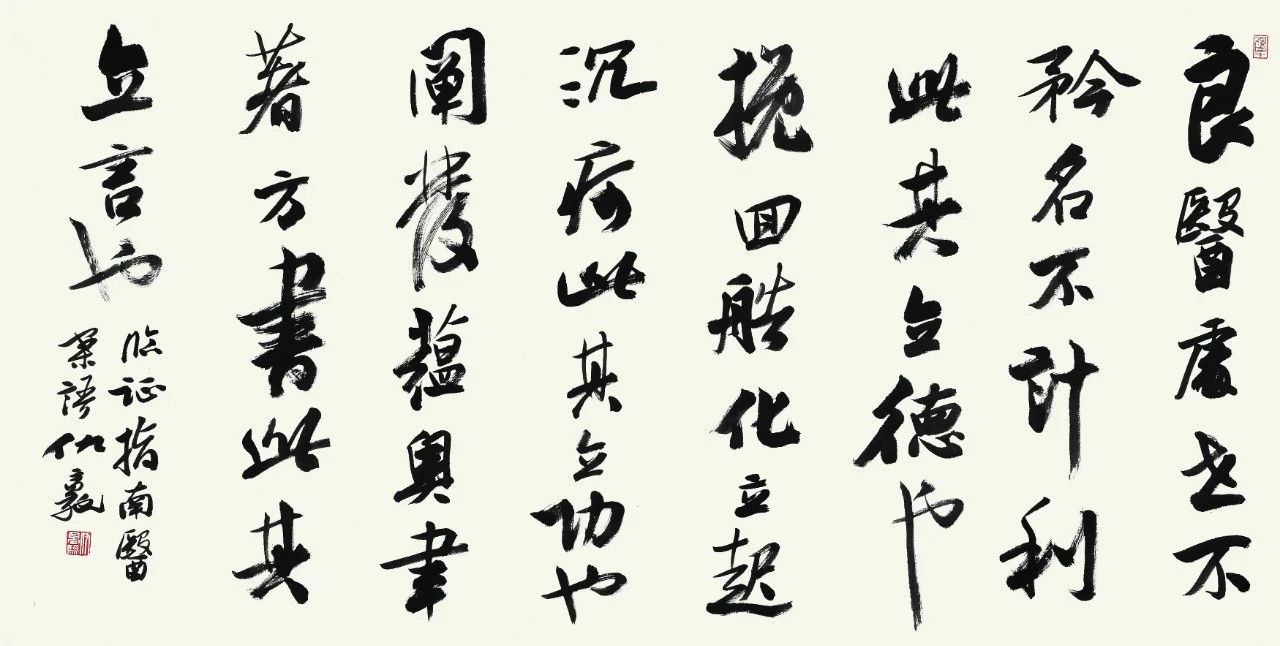 良醫處世不
矜名不計利
此其立德也
挽回艁化立起
沉疴此其立功也
闡發蘊奧聿
著方書此其
立言也
臨証指南醫
案語